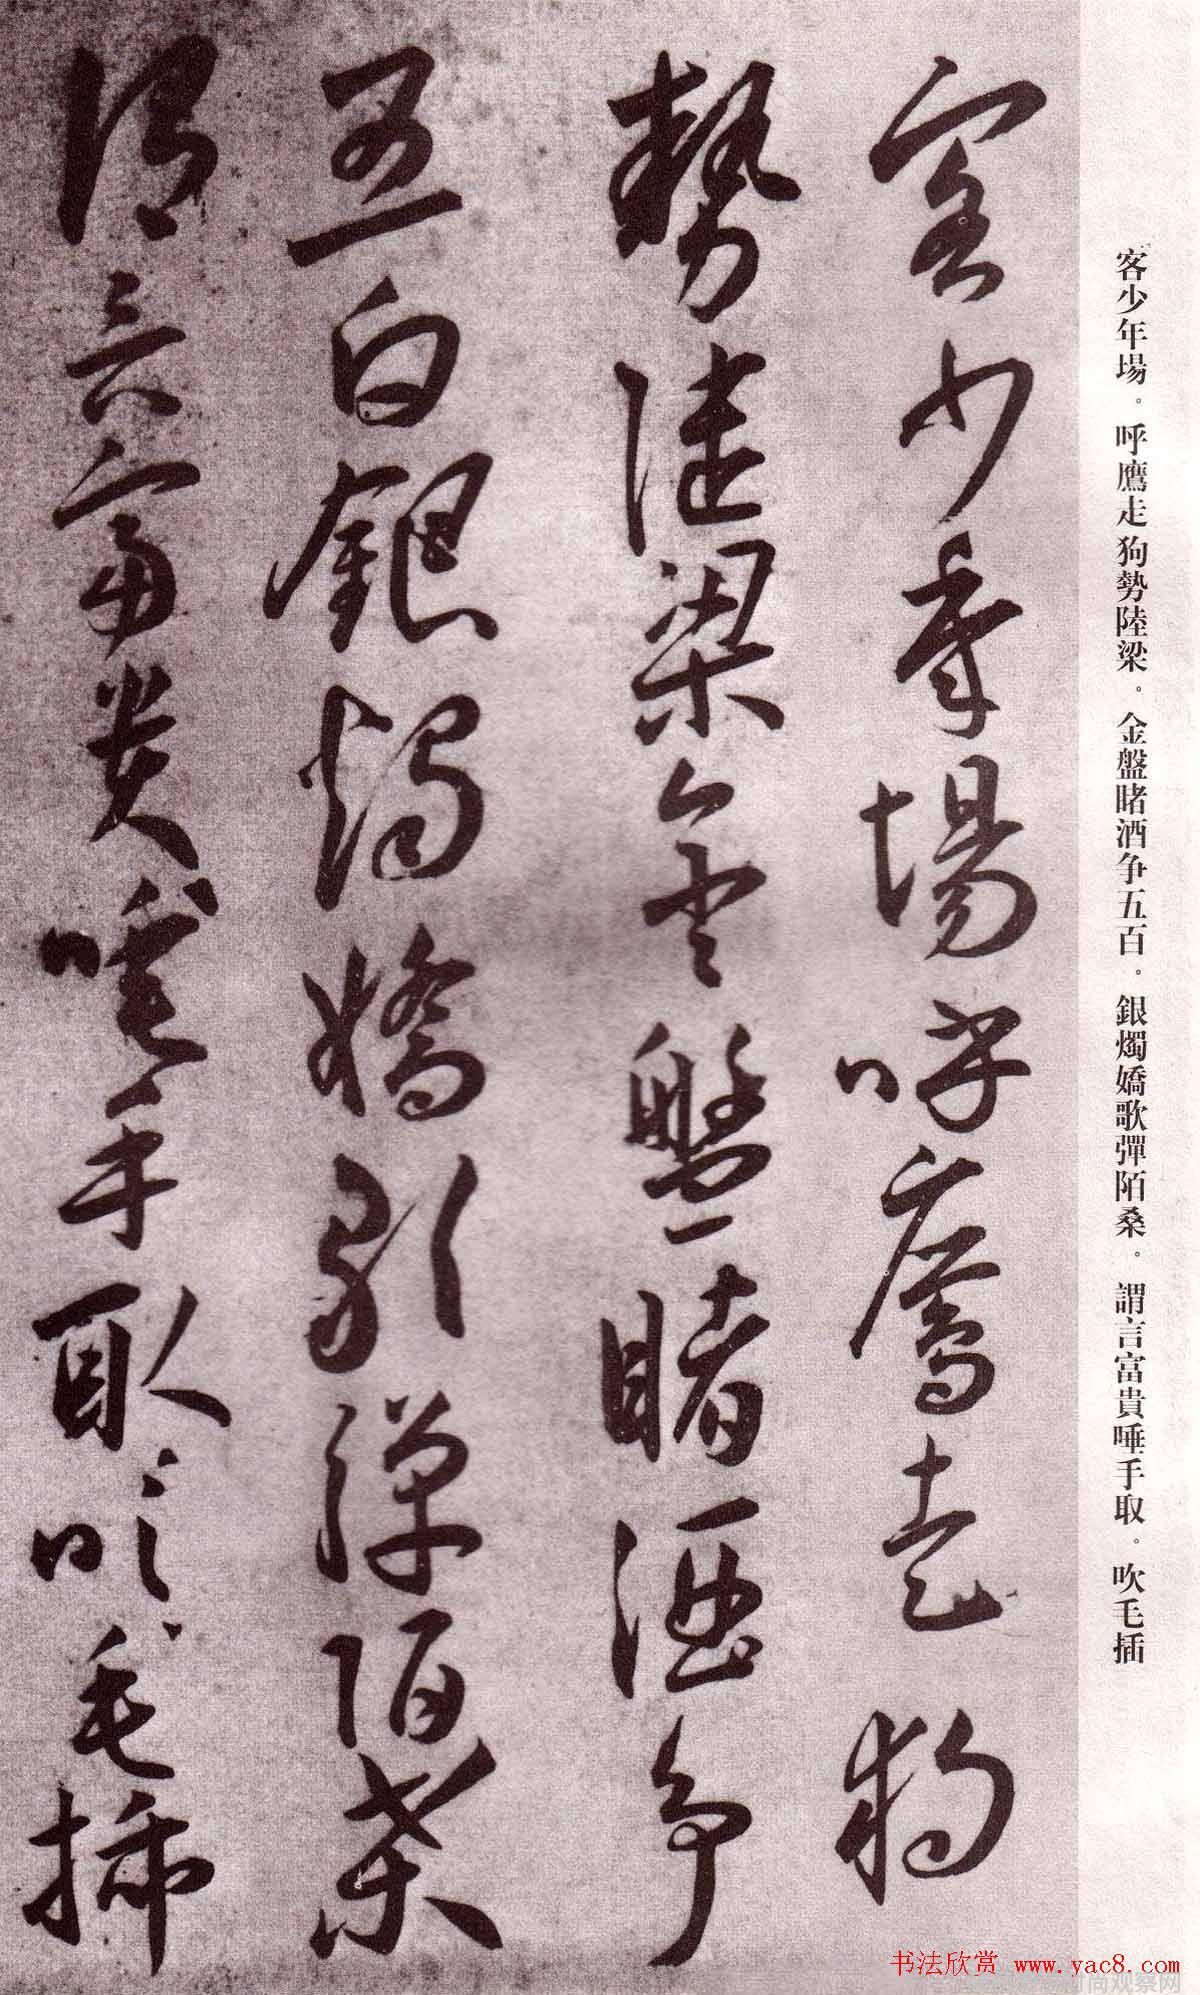 客少年場。呼鷹走狗勢陸梁。金盤賭酒争五百。銀燭嬌歌彈陌桑。謂言富貴唾手取。吹毛插
客少年場呼鷹走狗
勢陸梁金盤賭酒争
五白銀燭嬌歌彈陌桑
謂言富貴唾手取吹毛插
书法欣赏 www.yac8.com
时尚观察网